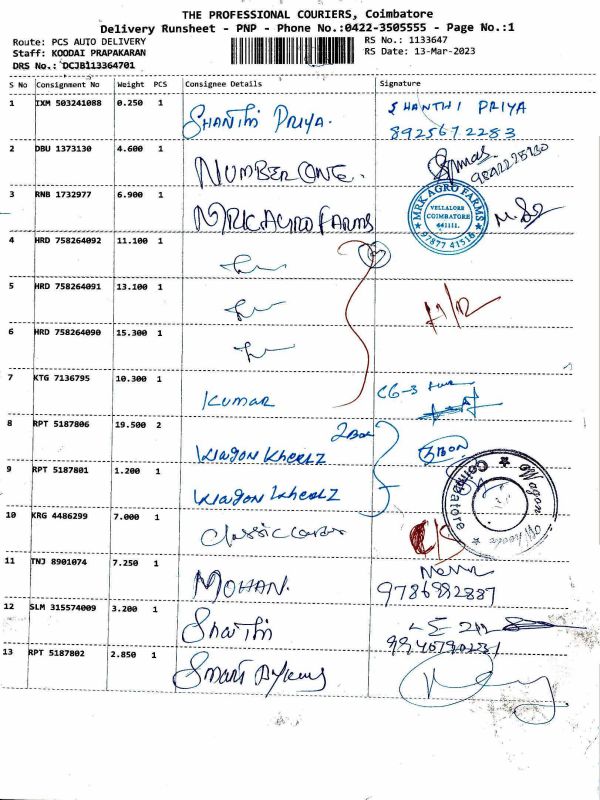 THE PROFESSIONAL COURIERS, Coimbatore
Delivery Runsheet - PNP - Phone No.:0422-3505555 - Page No.:1
Route: PCS AUTO DELIVERY RS No.: 1133647
Staff: KOODAI PRAPAKARAN RS Date: 13-Mar-2023
DRS No.: DCJB113364701
S No Consignment No Weight PCS Consignee Details Signature
1 IXM 503241088 0.250 1 SHANTHI PRIYA. SHANTHI PRIYA
8925672283
2 DBU 1373130 4.600 1 NUMBER ONE.
3 RNB 1732977 6.900 1 MRK AGRO FARMS
MRK AGRO FARMS
VELLALORE
COIMBATORE
641111.
97877 41516
4 HRD 758264092 11.100 1
5 HRD 758264091 13.100 1
6 HRD 758264090 15.300 1
7 KTG 7136795 10.300 1 KUMAR CG-3
8 RPT 5187806 19.500 2 2Box
Wagon Wheelz
9 RPT 5187801 1.200 1 Wagon Wheelz
Wagon Wheelz Coimbatore
10 KRG 4486299 7.000 1
11 TNJ 8901074 7.250 1 MOHAN.
9786992887
12 SLM 315574009 3.200 1
13 RPT 5187802 2.850 1 Smart